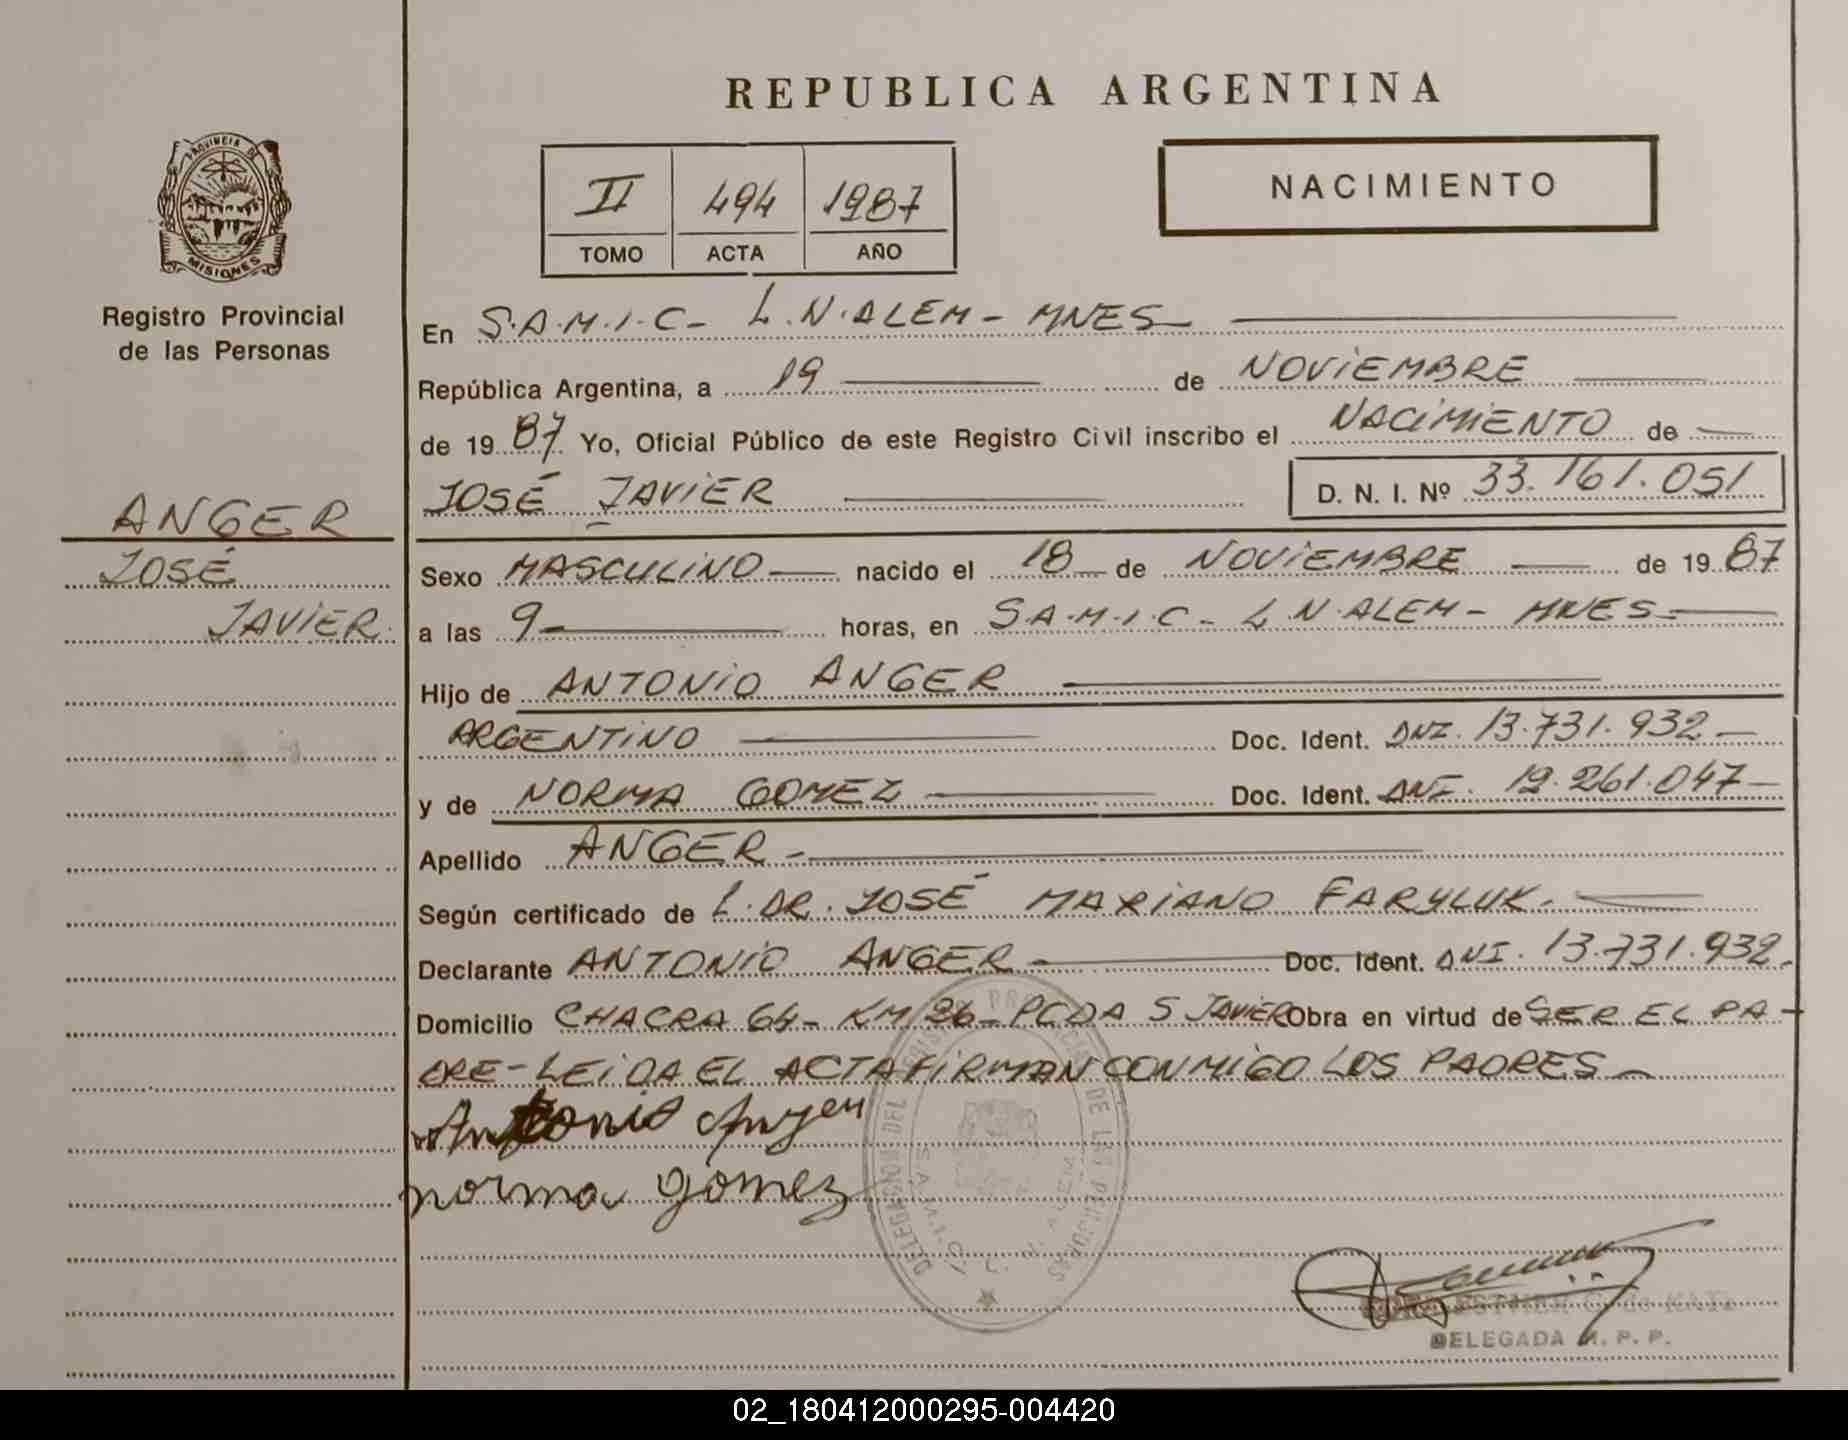 REPUBLICA ARGENTINA
PROVINCIA DE
MISIONES
Registro Provincial
de las Personas
II 494 1987
TOMO ACTA AÑO
NACIMIENTO
En S.A.M.I.C- L.N.ALEM- MNES
República Argentina, a 19 de NOVIEMBRE
de 19 87 Yo, Oficial Público de este Registro Civil inscribo el NACIMIENTO de
JOSÉ JAVIER D. N. I. Nº 33.161.051
ANGER
JOSÉ
JAVIER
Sexo MASCULINO nacido el 18 de NOVIEMBRE de 19 87
a las 9 horas, en S.A.M.I.C- L.N.ALEM- MNES
Hijo de ANTONIO ANGER
ARGENTINO Doc. Ident. DNI. 13.731.932
y de NORMA GOMEZ Doc. Ident. DNI. 12.261.047
Apellido ANGER
Según certificado de L. DR. JOSÉ MARIANO FARYLUK.
Declarante ANTONIO ANGER Doc. Ident. DNI. 13.731.932.
Domicilio CHACRA 64- KM 26- PCDA S JAVIER Obra en virtud de SER EL PA-
DRE- LEIDA EL ACTA FIRMAN CONMIGO LOS PADRES
Antonio Anger
norma gomez
DELEGACION DEL REGISTRO DE LAS PERSONAS
S.A.M.I.C. L. N. ALEM
ESTHER C. de
DELEGADA R. P. P.
02_180412000295-004420